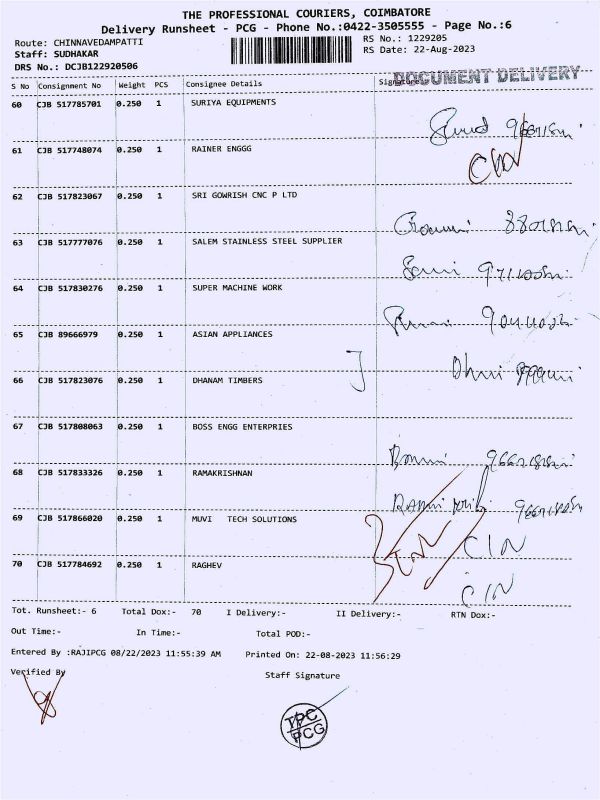 THE PROFESSIONAL COURIERS, COIMBATORE
Delivery Runsheet - PCG - Phone No.:0422-3505555 - Page No.:6
Route: CHINNAVEDAMPATTI RS No.: 1229205
Staff: SUDHAKAR RS Date: 22-Aug-2023
DRS No.: DCJB122920506
DOCUMENT DELIVERY
S No Consignment No Weight PCS Consignee Details Signature
60 CJB 517785701 0.250 1 SURIYA EQUIPMENTS
61 CJB 517748074 0.250 1 RAINER ENGGG
CIN
62 CJB 517823067 0.250 1 SRI GOWRISH CNC P LTD
63 CJB 517777076 0.250 1 SALEM STAINLESS STEEL SUPPLIER
64 CJB 517830276 0.250 1 SUPER MACHINE WORK
65 CJB 89666979 0.250 1 ASIAN APPLIANCES
66 CJB 517823076 0.250 1 DHANAM TIMBERS
67 CJB 517808063 0.250 1 BOSS ENGG ENTERPRIES
68 CJB 517833326 0.250 1 RAMAKRISHNAN
69 CJB 517866020 0.250 1 MUVI TECH SOLUTIONS
CIN
70 CJB 517784692 0.250 1 RAGHEV
CIN
Tot. Runsheet:- 6 Total Dox:- 70 I Delivery:- II Delivery:- RTN Dox:-
Out Time:- In Time:- Total POD:-
Entered By :RAJIPCG 08/22/2023 11:55:39 AM Printed On: 22-08-2023 11:56:29
Verified By Staff Signature
TPC
PCG